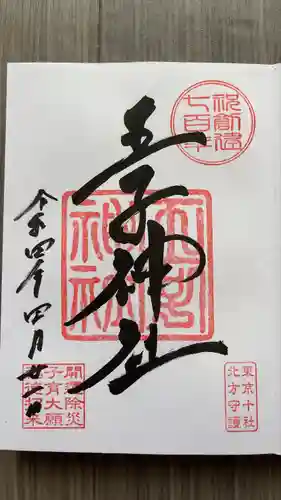 祝創建
七百年
王子神社
王子
神社
東京十社
北方守護
令和四年四月廿一日
開運除災
子育大願
招来